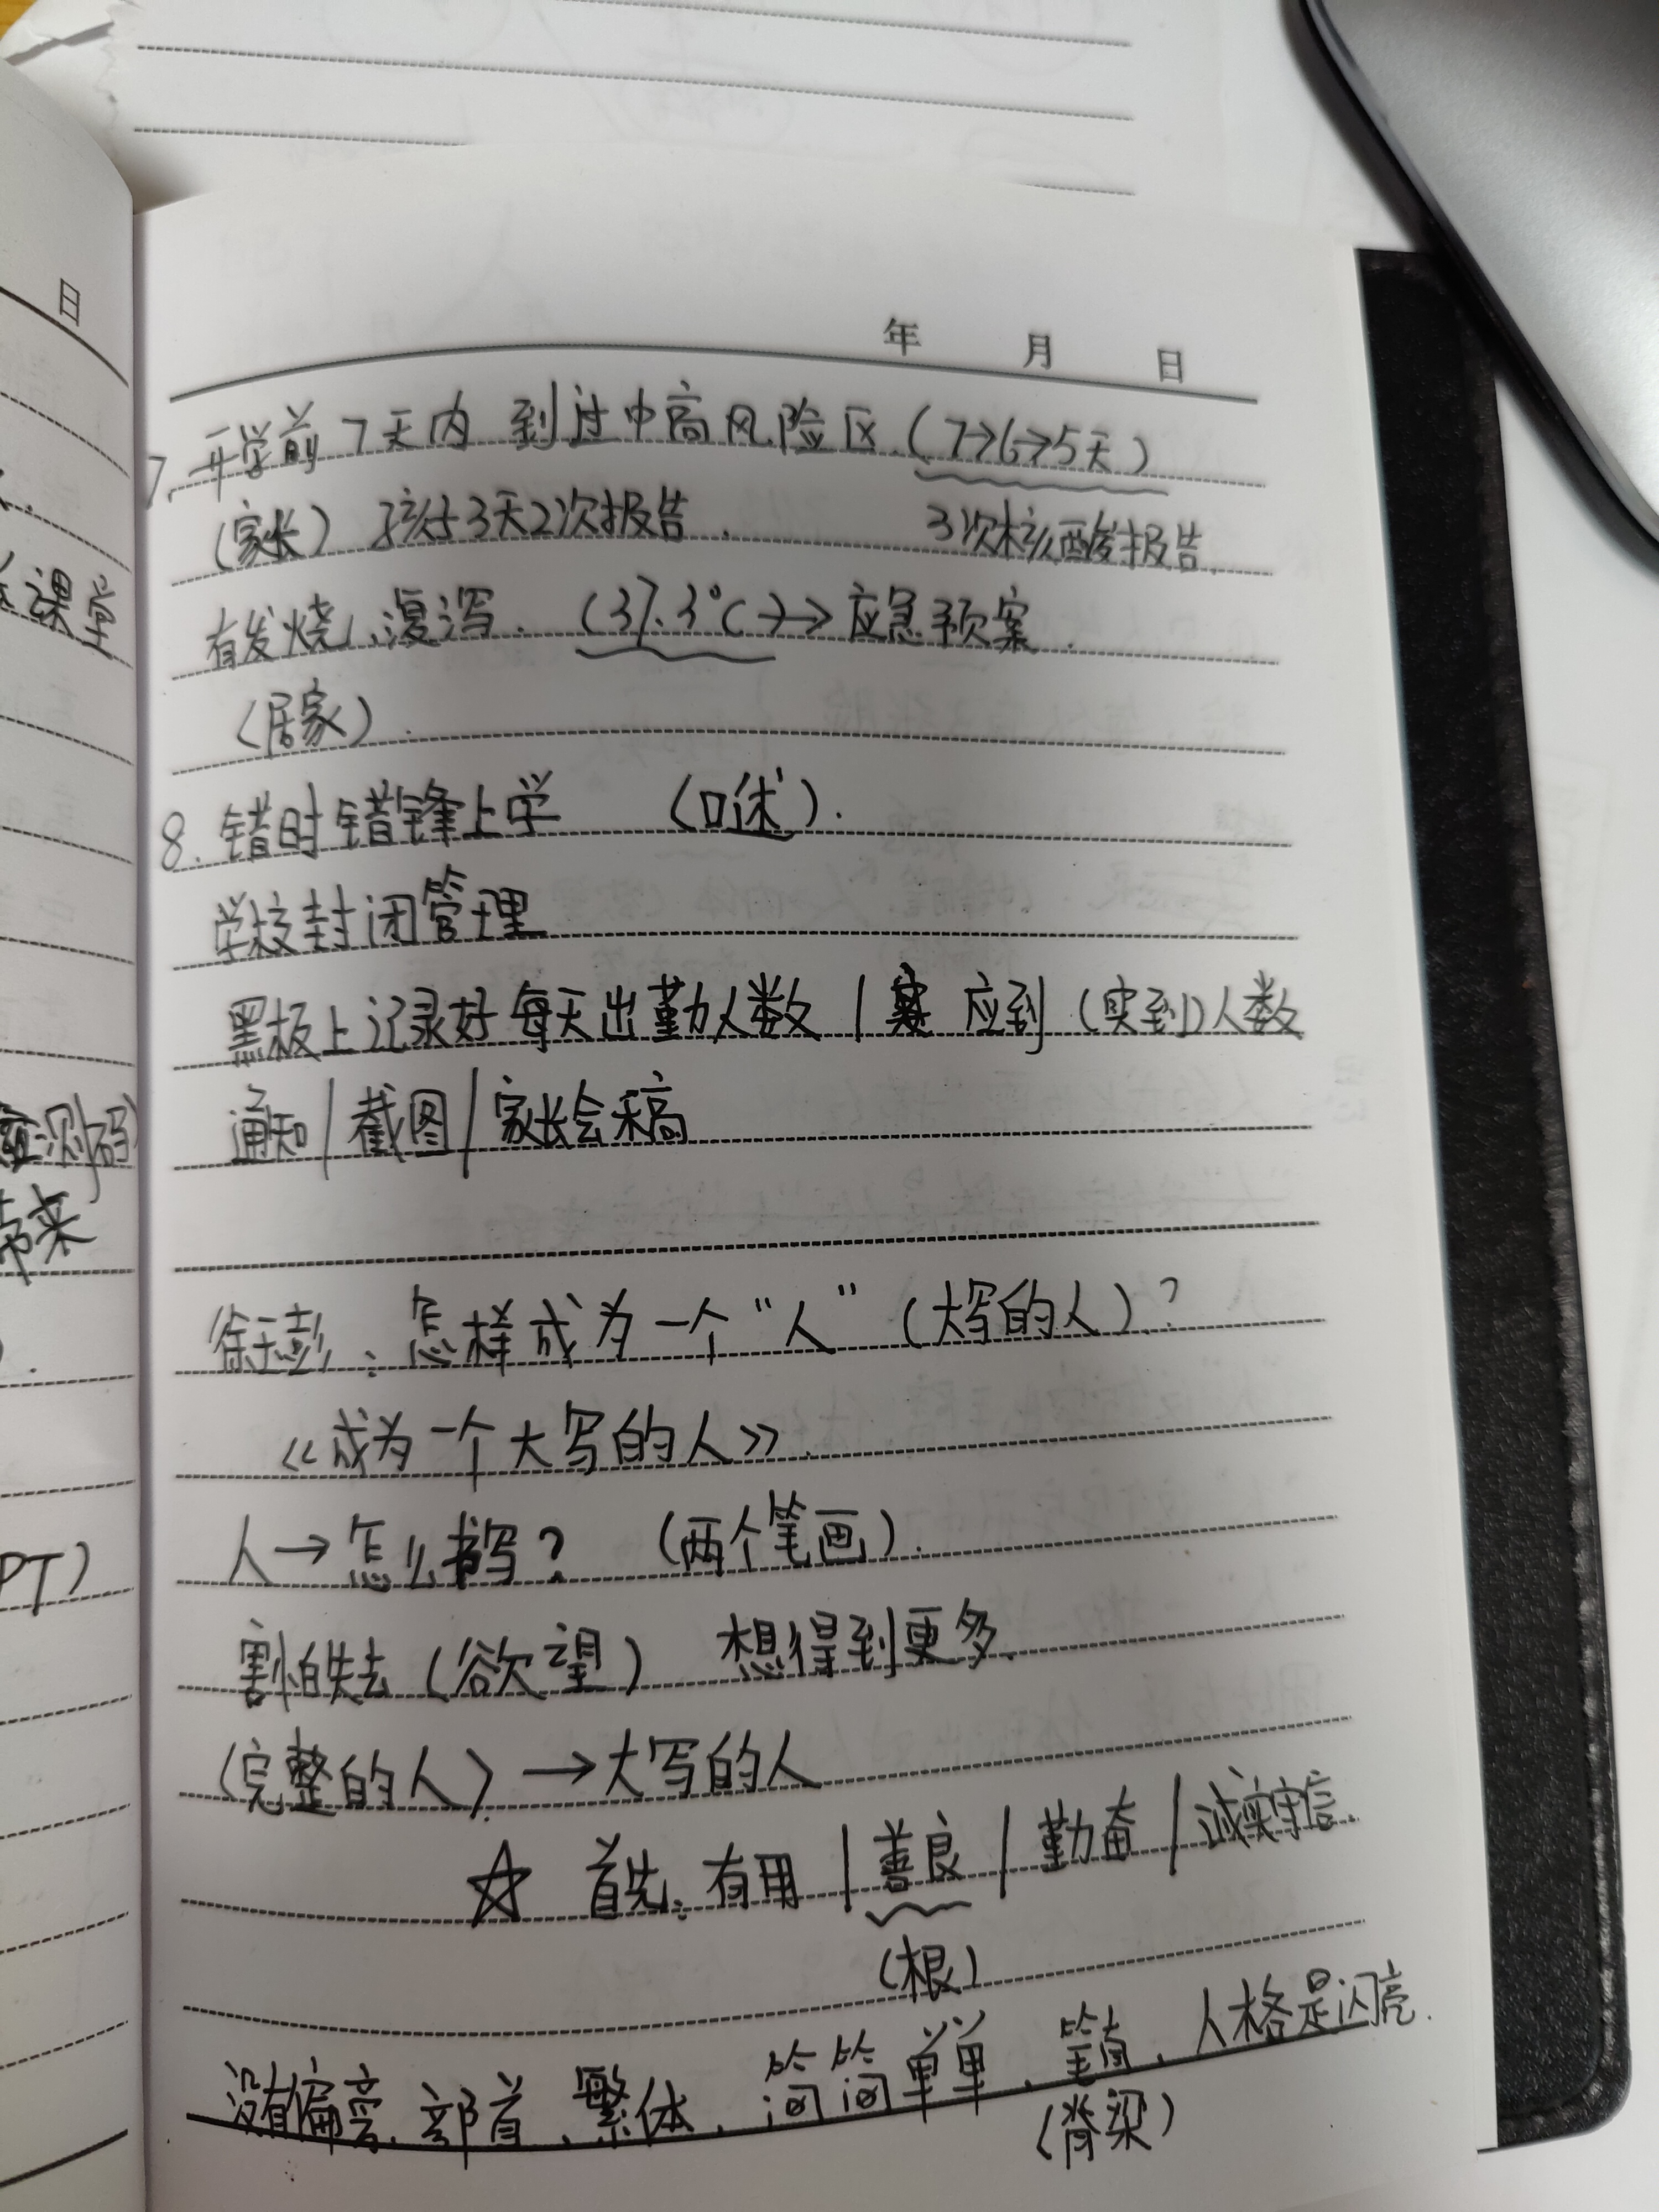 日
课堂
测码)
带来
PT)
年 月 日
7. 开学前 7天内 到过中高风险区 (7→6→5天)
(家长) 孩子3天2次报告. 3次核酸报告.
有发烧、腹泻. (37.3℃)→应急预案.
(居家).
8. 错时错锋上学 (口述).
学校封闭管理
黑板上记录好每天出勤人数 / 应到 (实到)人数
通知/截图/家长会稿
徐玉彭: 怎样成为一个"人" (大写的人)?
《成为一个大写的人》.
人→怎么书写? (两个笔画).
害怕失去(欲望) 想得到更多.
(完整的人) →大写的人
☆ 首先: 有用 / 善良 / 勤奋 / 诚实守信.
(根)
没有偏旁、部首、繁体, 简简单单、笔直, 人格是闪亮.
(脊梁)